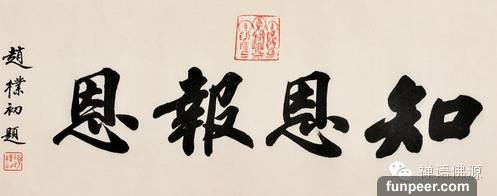 知恩報恩
趙樸初題
禅语佛源
funpeer.com